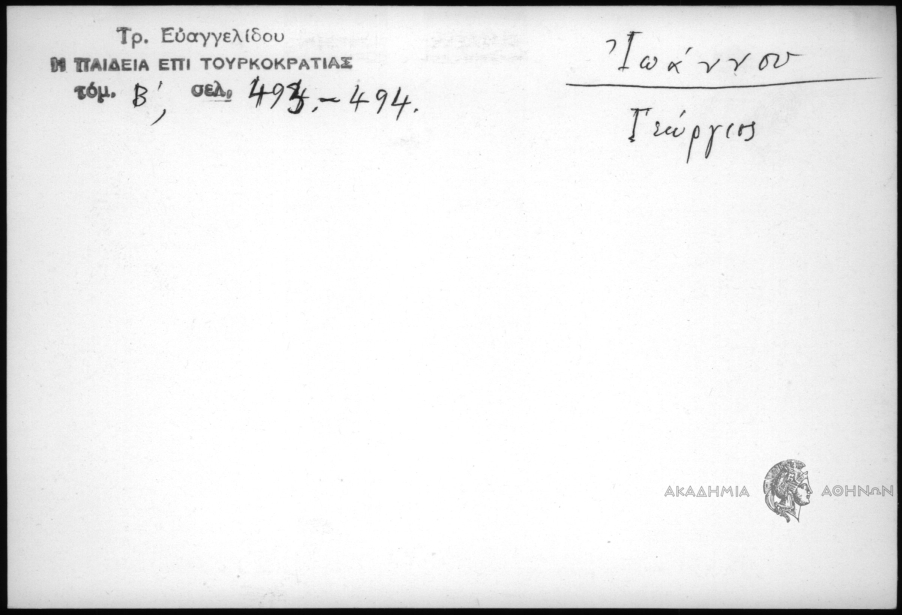 Τρ. Εὐαγγελίδου
Η ΠΑΙΔΕΙΑ ΕΠΙ ΤΟΥΡΚΟΚΡΑΤΙΑΣ
τόμ. Β', σελ. 493.-494.
Ἰωάννου
Γεώργιος
ΑΚΑΔΗΜΙΑ ΑΘΗΝΩΝ